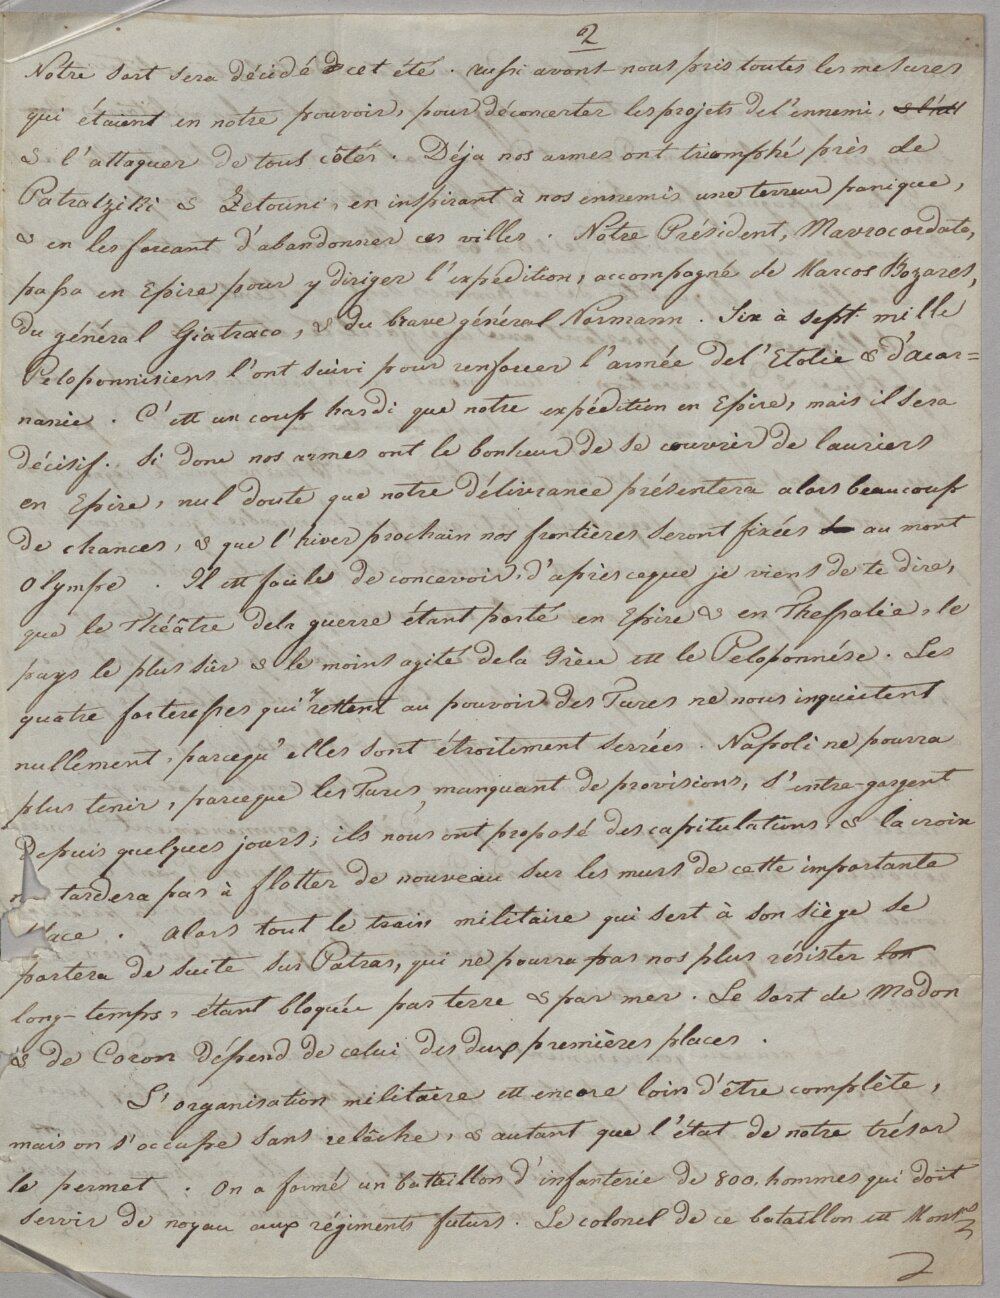 2
Notre sort sera décidé cet été. Aussi avons-nous pris toutes les mesures
qui étaient en notre pouvoir, pour déconcerter les projets de l'ennemi,
& l'attaquer de tous côtés. Déja nos armes ont triomphé près de
Patratziki & Zetouni, en inspirant à nos ennemis une terreur panique,
& en les forcant d'abandonner ces villes. Notre Président, Mavrocordato,
passa en Epire pour y diriger l'expédition, accompagné de Marcos Bozares,
du général Giatraco, & du brave général Normann. Six à sept mille
Peloponnisiens l'ont suivi pour renforcer l'armée de l'Etolie & d'acar=
nanie. C'est un coup hardi que notre expédition en Epire, mais il sera
décisif. Si donc nos armes ont le bonheur de se couvrir de lauriers
en Epire, nul doute que notre délivrance présentera alors beaucoup
de chances, & que l'hiver prochain nos frontières seront fixées au mont
Olympe. Il est facile de concevoir, d'après ceque je viens de te dire,
que le Théâtre dela guerre étant porté en Epire & en Thessalie, le
pays le plus sûr & le moins agité dela Grèce est le Peloponnése. Les
quatre forteresses qui restent au pouvoir des Turcs ne nous inquiètent
nullement, parcequ'elles sont étroitement serrées. Napoli ne pourra
plus tenir, parceque les Turcs, manquant de provisions, s'entre-gorgent
depuis quelques jours; ils nous ont proposé des capitulations, & la croix
ne tardera pas à flotter de nouveau sur les murs de cette importante
place. Alors tout le train militaire qui sert à son siège se
portera de suite sur Patras, qui ne pourra pas nos plus résister
long-temps, étant bloquée par terre & par mer. Le sort de Modon
& de Coron dépend de celui des deux premières places.
L'organisation militaire est encore loin d'être complète,
mais on s'occupe sans relâche, & autant que l'état de notre trésor
le permet. On a formé un battaillon d'infanterie de 800. hommes qui doit
servir de noyau aux régiments futurs. Le colonel de ce bataillon est